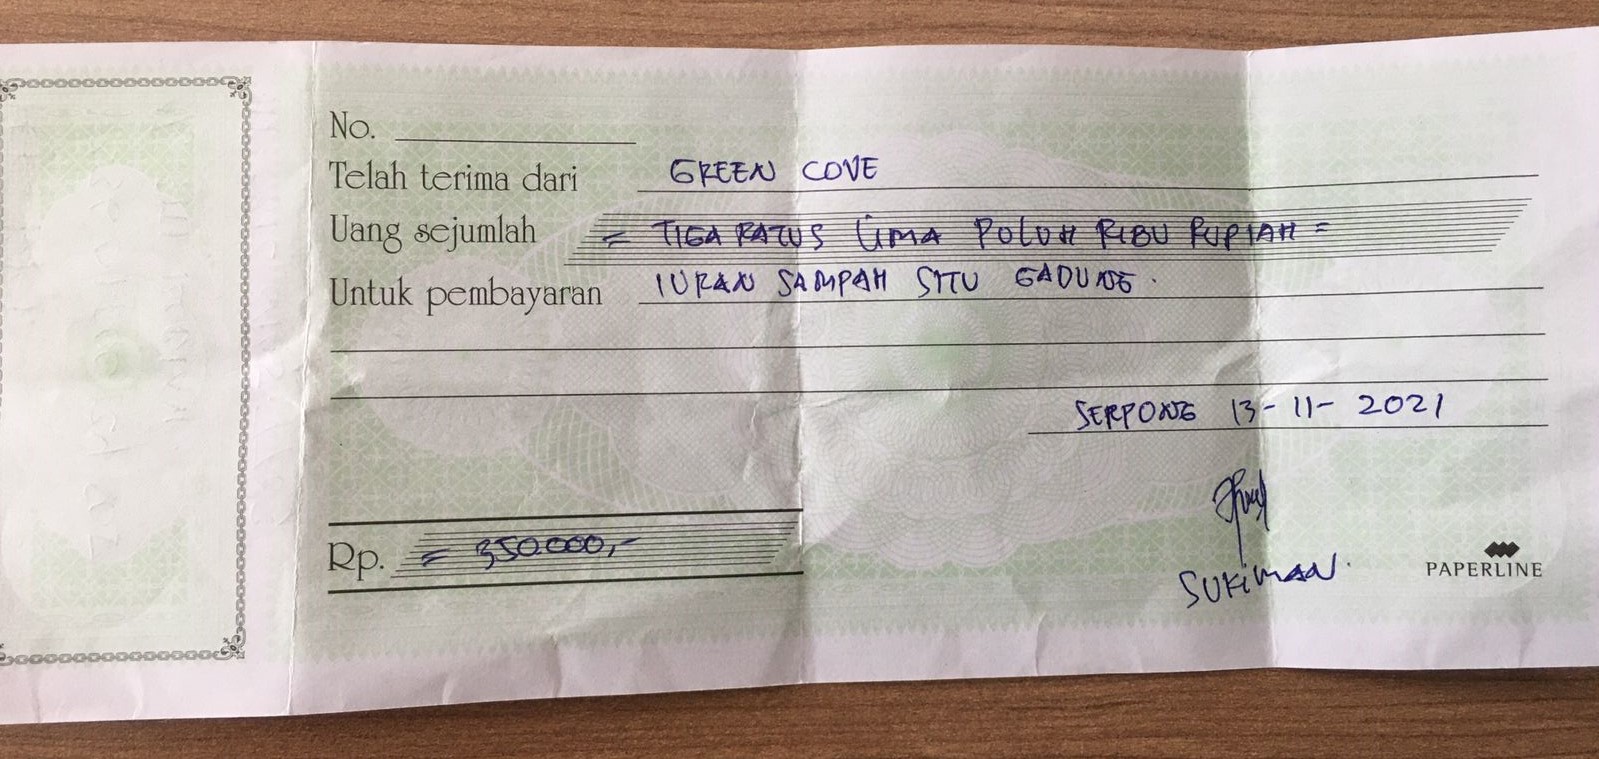 No.
Telah terima dari GREEN COVE
Uang sejumlah = TIGA RATUS LIMA POLUH RIBU RUPIAH =
Untuk pembayaran IURAN SAMPAH SITU GADUNG.
SERPONG 13-11-2021
Rp. = 350.000,-
SUKIMAN.
PAPERLINE